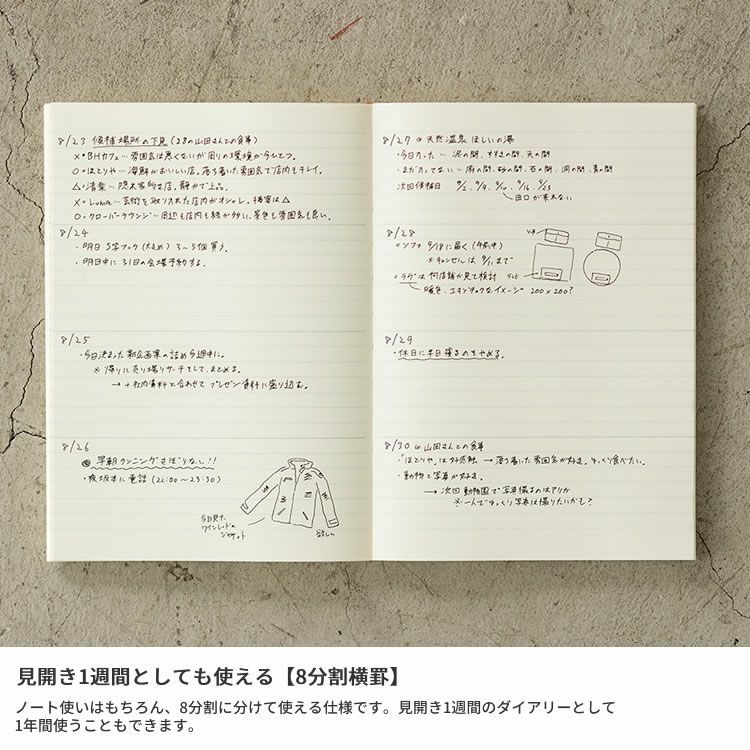 8/23 候補場所の下見(28の山田さんとの食事)
×・BHカフェ…雰囲気は悪くないが周りの環境が今ひとつ。
○・ほとりや…海鮮がおいしい店。落ち着いた雰囲気で店内もキレイ。
△・清楽…院太客的な店。静かで上品。
×・Loma…芸術を取り入れた店内がオシャレ。接客は△
○・クローバーラウンジ…周辺も店内も緑が多い、景色も雰囲気も良い。
8/24
・明日 S字フック(大きめ)3〜5個買う。
・明日中に31日の会場予約する。
8/25
・今日決まった新企画案の詰め今週中に。
※帰りに売り場リサーチをして、まとめる。
→+社内資料と合わせてプレゼン資料に盛り込む。
8/26
早朝ランニングさぼりなし!!
・夜坂本に電話(21:00〜23:30)
今日見た
ワインレッドの
ジャケット
欲しい
8/27 @天然温泉 ほしいの湯
・今日入った…泥の間、すすきの間、天の間
・まだ入ってない〜雨の間、砂の間、石の間、洞の間、青の間
次回候補日 9/2、9/9、9/10、9/16、9/23
田口が来れない
8/28
○ソファ 9/18に届く(午前中)
※キャンセルは9/11まで
○ラグは何店舗か見て検討
暖色、エキゾチックなイメージ 200×200?
ソファ
テレビ
8/29
・休日に半日寝るのをやめる。
8/30 @山田さんとの食事
・「ほとりや」は好感触 → 落ち着いた雰囲気が好き。ゆっくり食べたい。
・動物と写真が好き。
→次回動物園で写真撮るのはアリか
※一人でゆっくり写真は撮りたいかも?
見開き1週間としても使える【8分割横罫】
ノート使いはもちろん、8分割に分けて使える仕様です。見開き1週間のダイアリーとして
1年間使うこともできます。